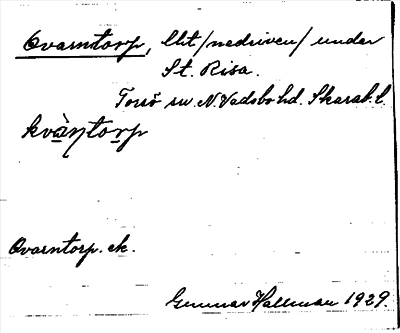 Qvarntorp, lht/nedriven/ under
St. Risa.
Torsö sn. N. Vadsbo hd. Skarab. l.
kvàṇtorp
Qvarntorp. ek.
Gunnar Hallman 1929.